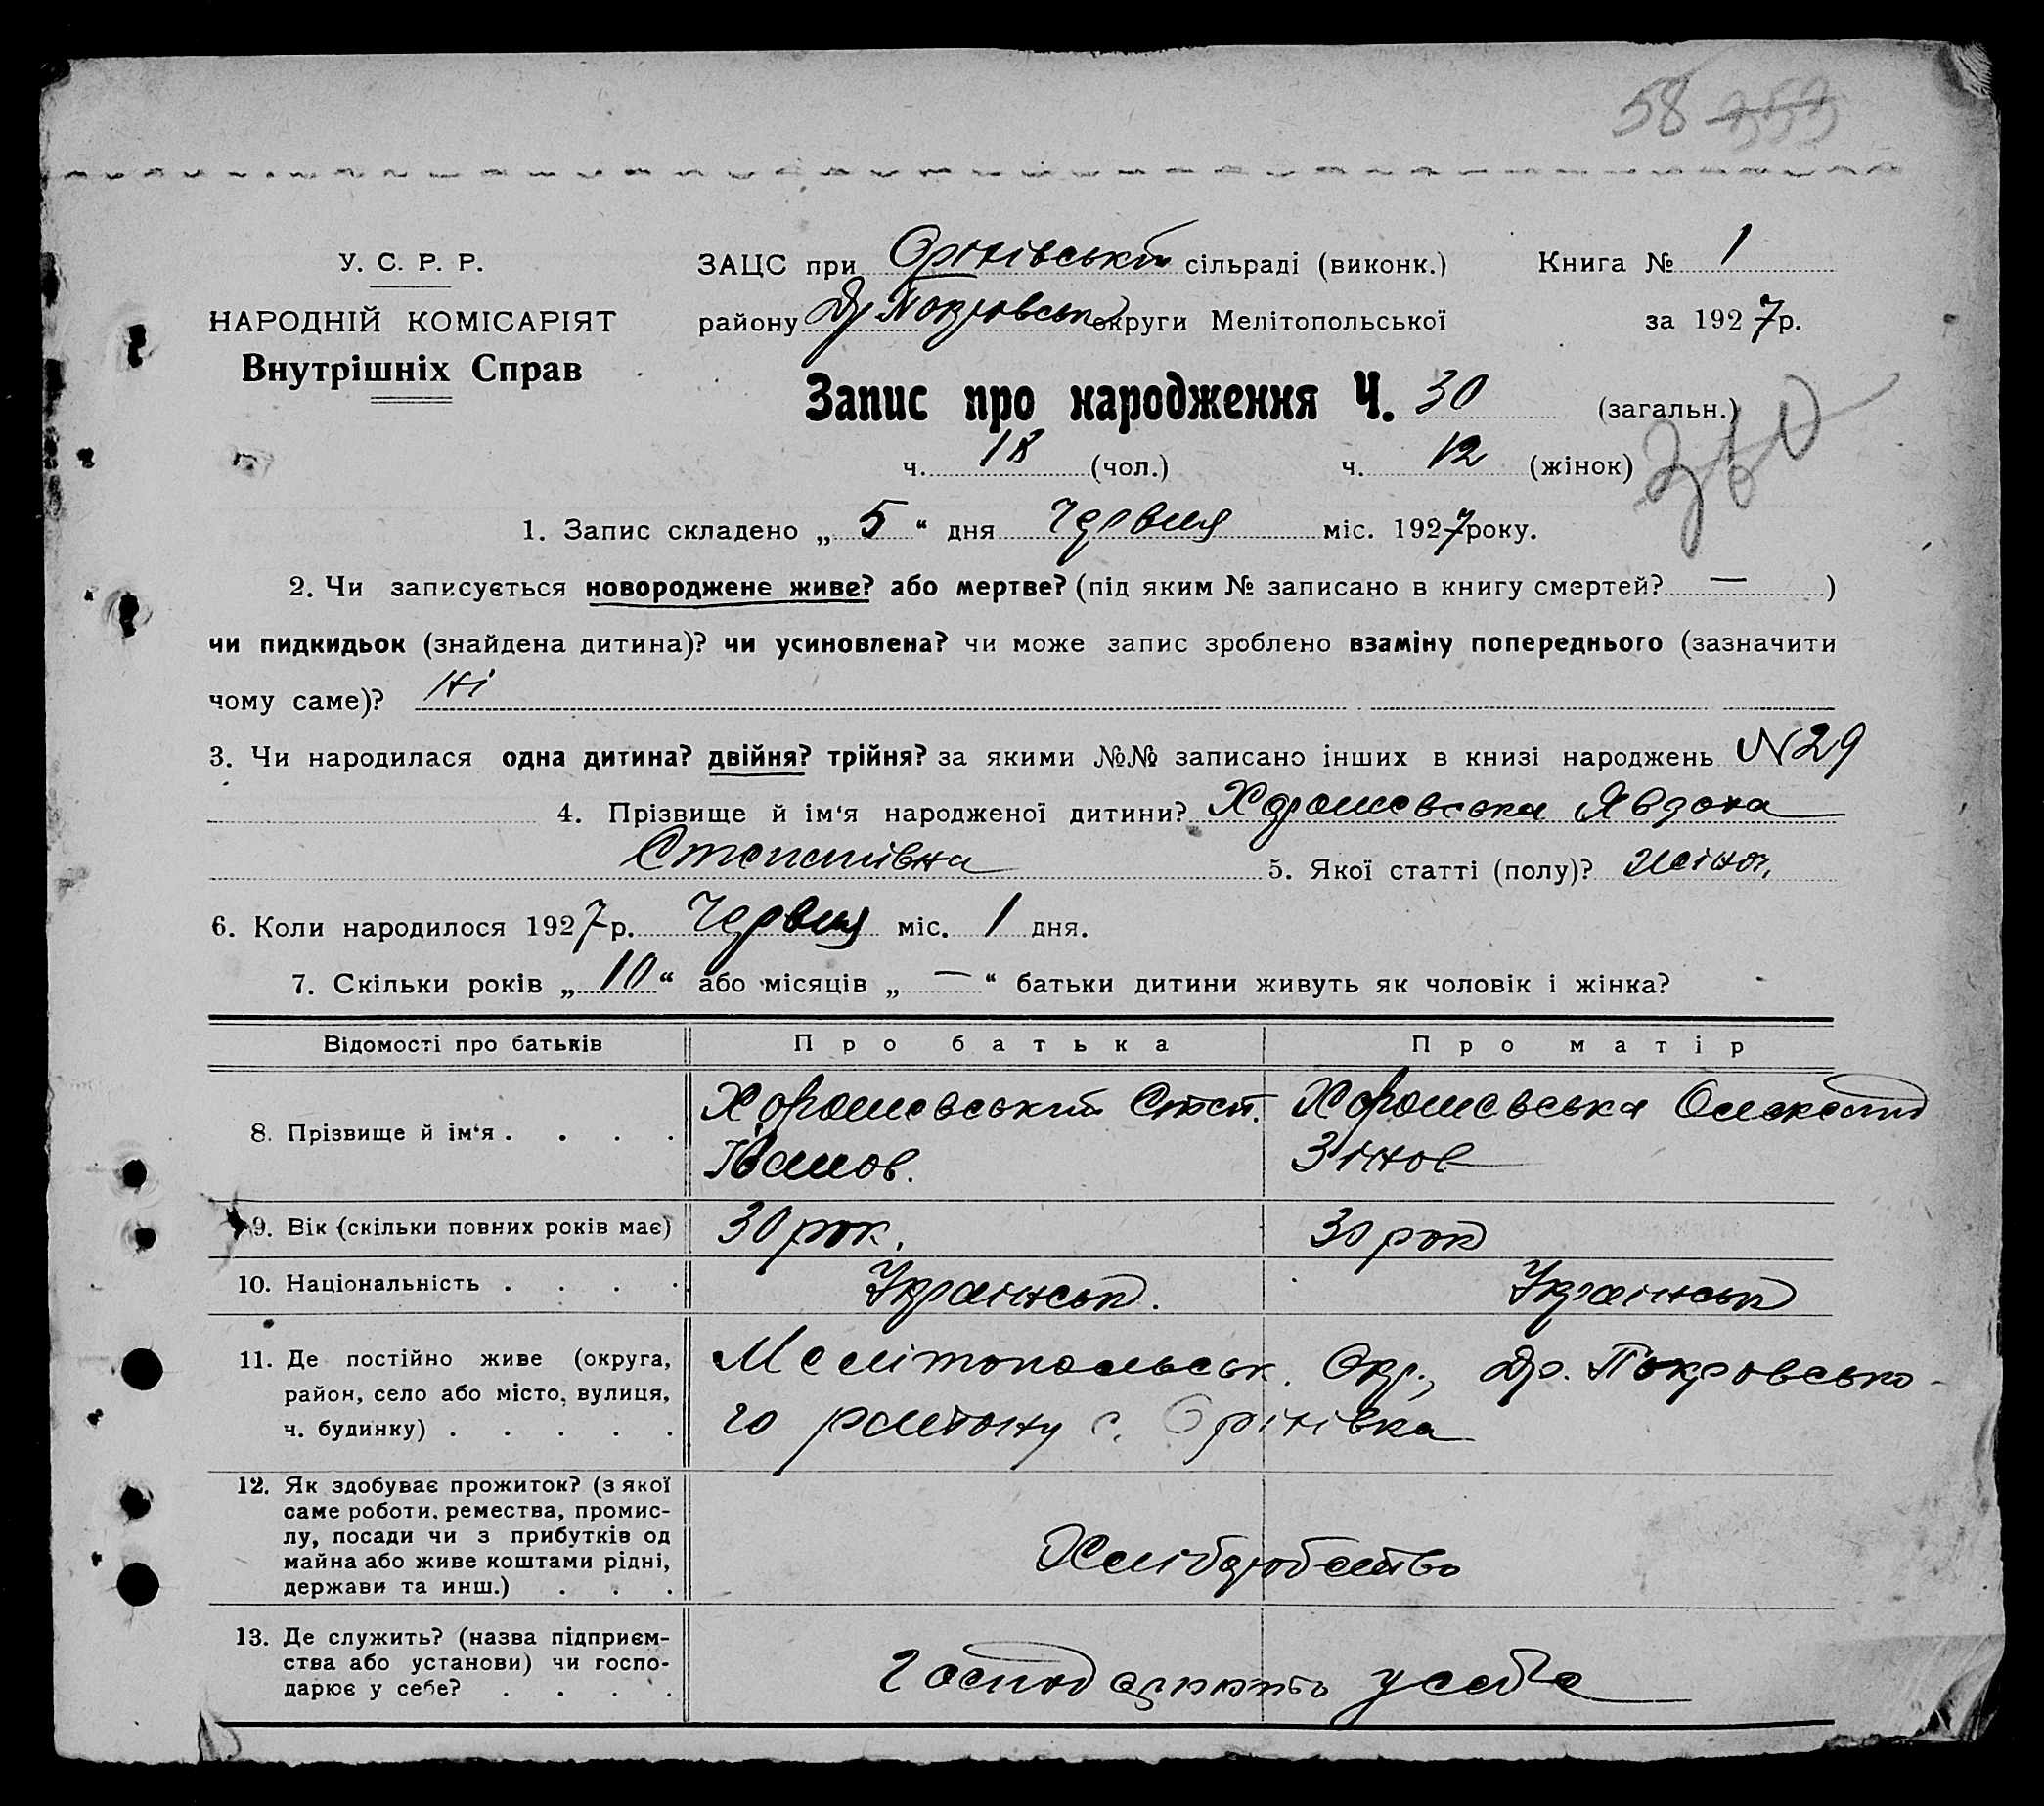 58 359
У. С. Р. Р.
НАРОДНІЙ КОМІСАРІЯТ
Внутрішніх Справ
ЗАЦС при Орінівській сільраді (виконк.)
Книга № 1
району Др Покровськ округи Мелітопольської
за 1927 р.
Запис про народження Ч. 30 (загальн.)
360
ч. 18 (чол.) ч. 12 (жінок)
1. Запис складено „ 5 “ дня Червня міс. 1927 року.
2. Чи записується новороджене живе? або мертве? (під яким № записано в книгу смертей? — )
чи пидкидьок (знайдена дитина)? чи усиновлена? чи може запис зроблено взаміну попереднього (зазначити
чому саме)? Ні
3. Чи народилася одна дитина? двійня? трійня? за якими №№ записано інших в книзі народжень N 29
4. Прізвище й ім‘я народженої дитини? Хорошевська Явдоха
Степанівна 5. Якої статті (полу)? жіноч.
6. Коли народилося 1927 р. Червня міс. 1 дня.
7. Скільки років „ 10 “ або місяців „ — “ батьки дитини живуть як чоловік і жінка?
Відомості про батьків Про батька Про матір
8. Прізвище й ім‘я . . . .
Хорошевський Степ.
Іванов.
Хорошевська Олександ
Зінов
9. Вік (скільки повних років має) 30 рок. 30 рок
10. Національність . . . . Українськ. Українськ
11. Де постійно живе (округа,
район, село або місто, вулиця,
ч. будинку) . . . . .
Мелітопольськ. Окр., Др. Покровсько-
го району с. Орінівка
12. Як здобуває прожиток? (з якої
саме роботи, ремества, промис-
лу, посади чи з прибутків од
майна або живе коштами рідні,
держави та инш.) . . .
Хліборобство
13. Де служить? (назва підприєм-
ства або установи) чи госпо-
дарює у себе? . . . .
Господарюють у себе